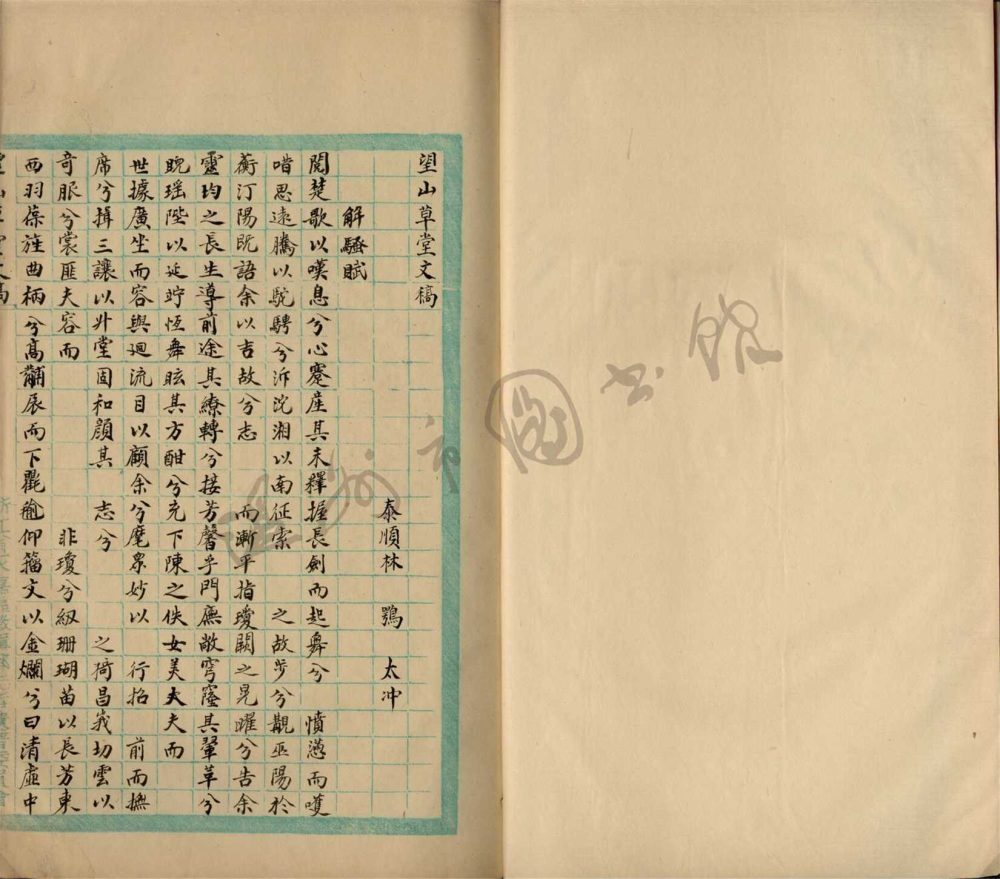 望山草堂文稿
泰順林 鶚 太冲
解騷賦
閱楚歌以嘆息兮心蹇産其未釋握長劍而起舞兮 憤懣而嘆
喈思遠騰以駝騁兮泝沅湘以南征索 之故步兮覯巫陽於
蘅汀陽既語余以吉故兮志 而漸平指瓊闕之晃曜兮告余
靈均之長生導前途其繚轉兮接芳馨乎門廡敞穹窿其翬革兮
睨瑶陛以延竚恆舞眩其方酣兮充下陳之佚女美夫夫而
世據廣坐而容與廻流目以顧余兮麾衆妙以 行招 前而撫
席兮揖三讓以升堂固和顏其 志兮 之猗昌峩切雲以
奇服兮裳匪夫容而 非瓊兮紉珊瑚苗以長芳東
西羽葆旌曲柄兮高黼扆而下氍毹仰籀文以金爛兮曰清虛中
温州市圖书館